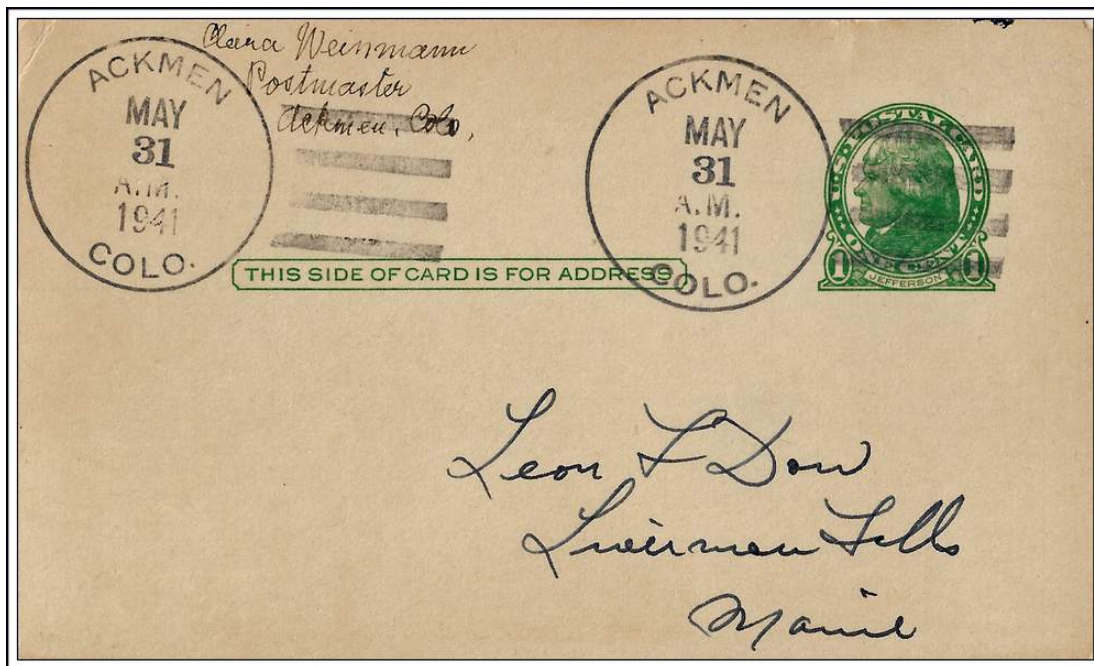 Clara Weinmann
Postmaster
Ackmen, Colo,
ACKMEN
MAY
31
A.M.
1941
COLO.
ACKMEN
MAY
31
A.M.
1941
COLO.
U.S. POSTAL CARD
ONE CENT
1 JEFFERSON 1
THIS SIDE OF CARD IS FOR ADDRESS
Leon L Dow
Livermore Falls
Maine